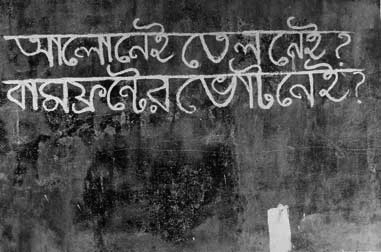 আলো নেই তেল নেই ?
বামফ্রন্টের ভোট নেই ?